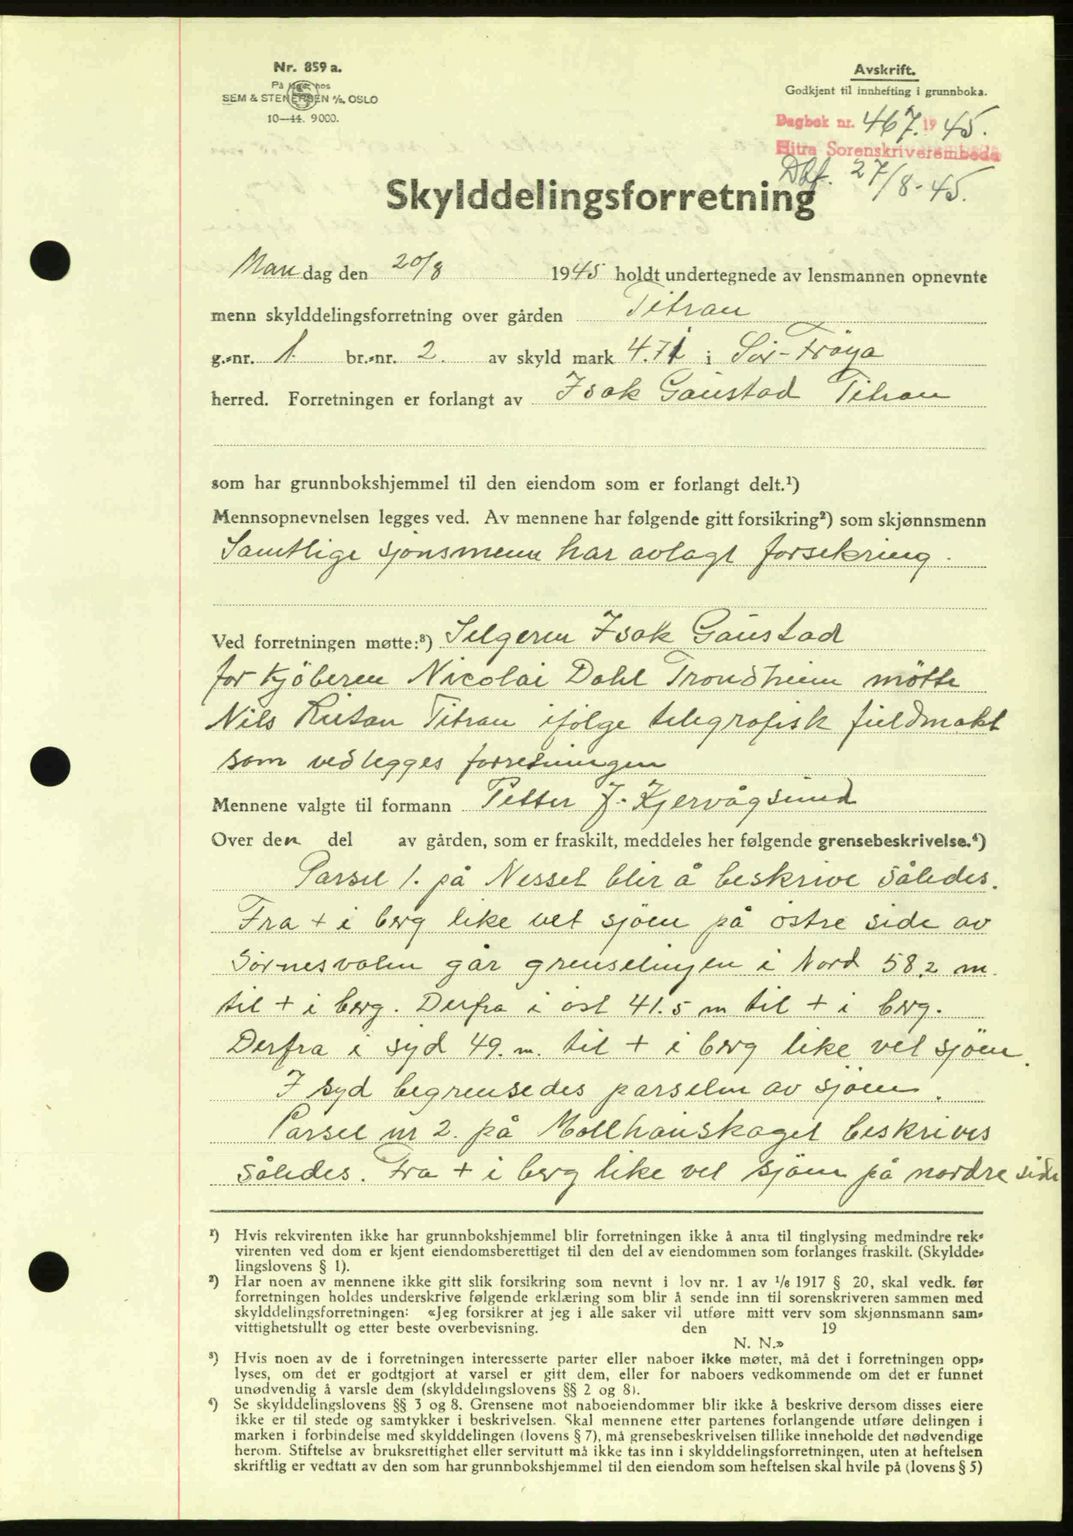 Nr. 859 a.
På lager hos
SEM & STENERSEN A/S, OSLO
10—44. 9000.
Avskrift.
Godkjent til innhefting i grunnboka.
Dagbok nr. 467. 1945.
Hitra Sorenskriverembede
Dbf. 27/8-45.
Skylddelingsforretning
Mandag den 20/8 1945 holdt undertegnede av lensmannen opnevnte
menn skylddelingsforretning over gården Titran
g.-nr. 1. br.-nr. 2. av skyld mark 4.71 i Sør-Frøya
herred. Forretningen er forlangt av Isak Gaustad Titran
som har grunnbokshjemmel til den eiendom som er forlangt delt.¹)
Mennsopnevnelsen legges ved. Av mennene har følgende gitt forsikring²) som skjønnsmenn
Samtlige sjønsmenn har avlagt forsekring.
Ved forretningen møtte:³) Selgeren Isak Gaustad
for kjöberen Nicolai Dahl Trondheim mötte
Nils Titran ifölge telegrafisk fuldmakt
som vedlegges forretningen
Mennene valgte til formann Petter J. Kjervågsund
Over den del av gården, som er fraskilt, meddeles her følgende grensebeskrivelse.⁴)
Parsel 1. på Nesset blir å beskrive således.
Fra + i berg like vet sjöen på östre side av
Sörnesvalen går grenselinjen i Nord 58,2 m.
til + i berg. Derfra i öst 41.5 m til + i berg.
Derfra i syd 49. m. til + i berg like vet sjöen.
I syd begrensedes parselen av sjöen.
Parsel nr 2. på Mollhauskaget beskrives
således. Fra + i berg like vet sjöen på nordre side
¹) Hvis rekvirenten ikke har grunnbokshjemmel blir forretningen ikke å anta til tinglysing medmindre rek-
virenten ved dom er kjent eiendomsberettiget til den del av eiendommen som forlanges fraskilt. (Skyldde-
lingslovens § 1).
²) Har noen av mennene ikke gitt slik forsikring som nevnt i lov nr. 1 av 1/6 1917 § 20, skal vedk. før
forretningen holdes underskrive følgende erklæring som blir å sende inn til sorenskriveren sammen med
skylddelingsforretningen: «Jeg forsikrer at jeg i alle saker vil utføre mitt verv som skjønnsmann sam-
vittighetsfullt og etter beste overbevisning. den 19
N. N.»
³) Hvis noen av de i forretningen interesserte parter eller naboer ikke møter, må det i forretningen opp-
lyses, om det er godtgjort at varsel er gitt dem, eller for naboers vedkommende om det er funnet
unødvendig å varsle dem (skylddelingslovens §§ 2 og 8).
⁴) Se skylddelingslovens §§ 3 og 8. Grensene mot naboeiendommer blir ikke å beskrive dersom disses eiere
ikke er til stede og samtykker i beskrivelsen. Skal mennene etter partenes forlangende utføre delingen i
marken i forbindelse med skylddelingen (lovens § 7), må grensebeskrivelsen tillike inneholde det nødvendige
herom. Stiftelse av bruksrettighet eller servitutt må ikke tas inn i skylddelingsforretningen, uten at heftelsen
skriftlig er vedtatt av den som har grunnbokshjemmel til den eiendom som heftelsen skal hvile på (lovens § 5)